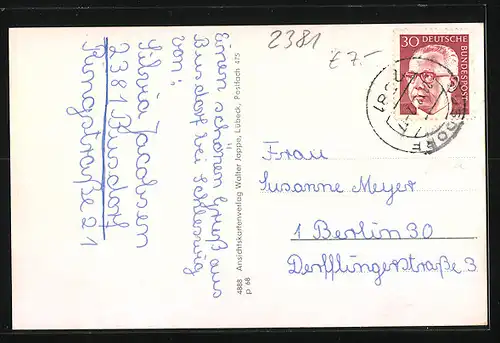 2381
€ 7.-
30 DEUTSCHE
BUNDESPOST
2381
Einen schönen Gruß aus
Busdorf bei Schleswig
von:
Silvia Jacobsen
2381 Busdorf
Ringstraße 21
4888 Ansichtskartenverlag Walter Joppe, Lübeck, Postfach 475
p 68
Frau
Susanne Meyer
1 Berlin 30
Derfflingerstraße 3